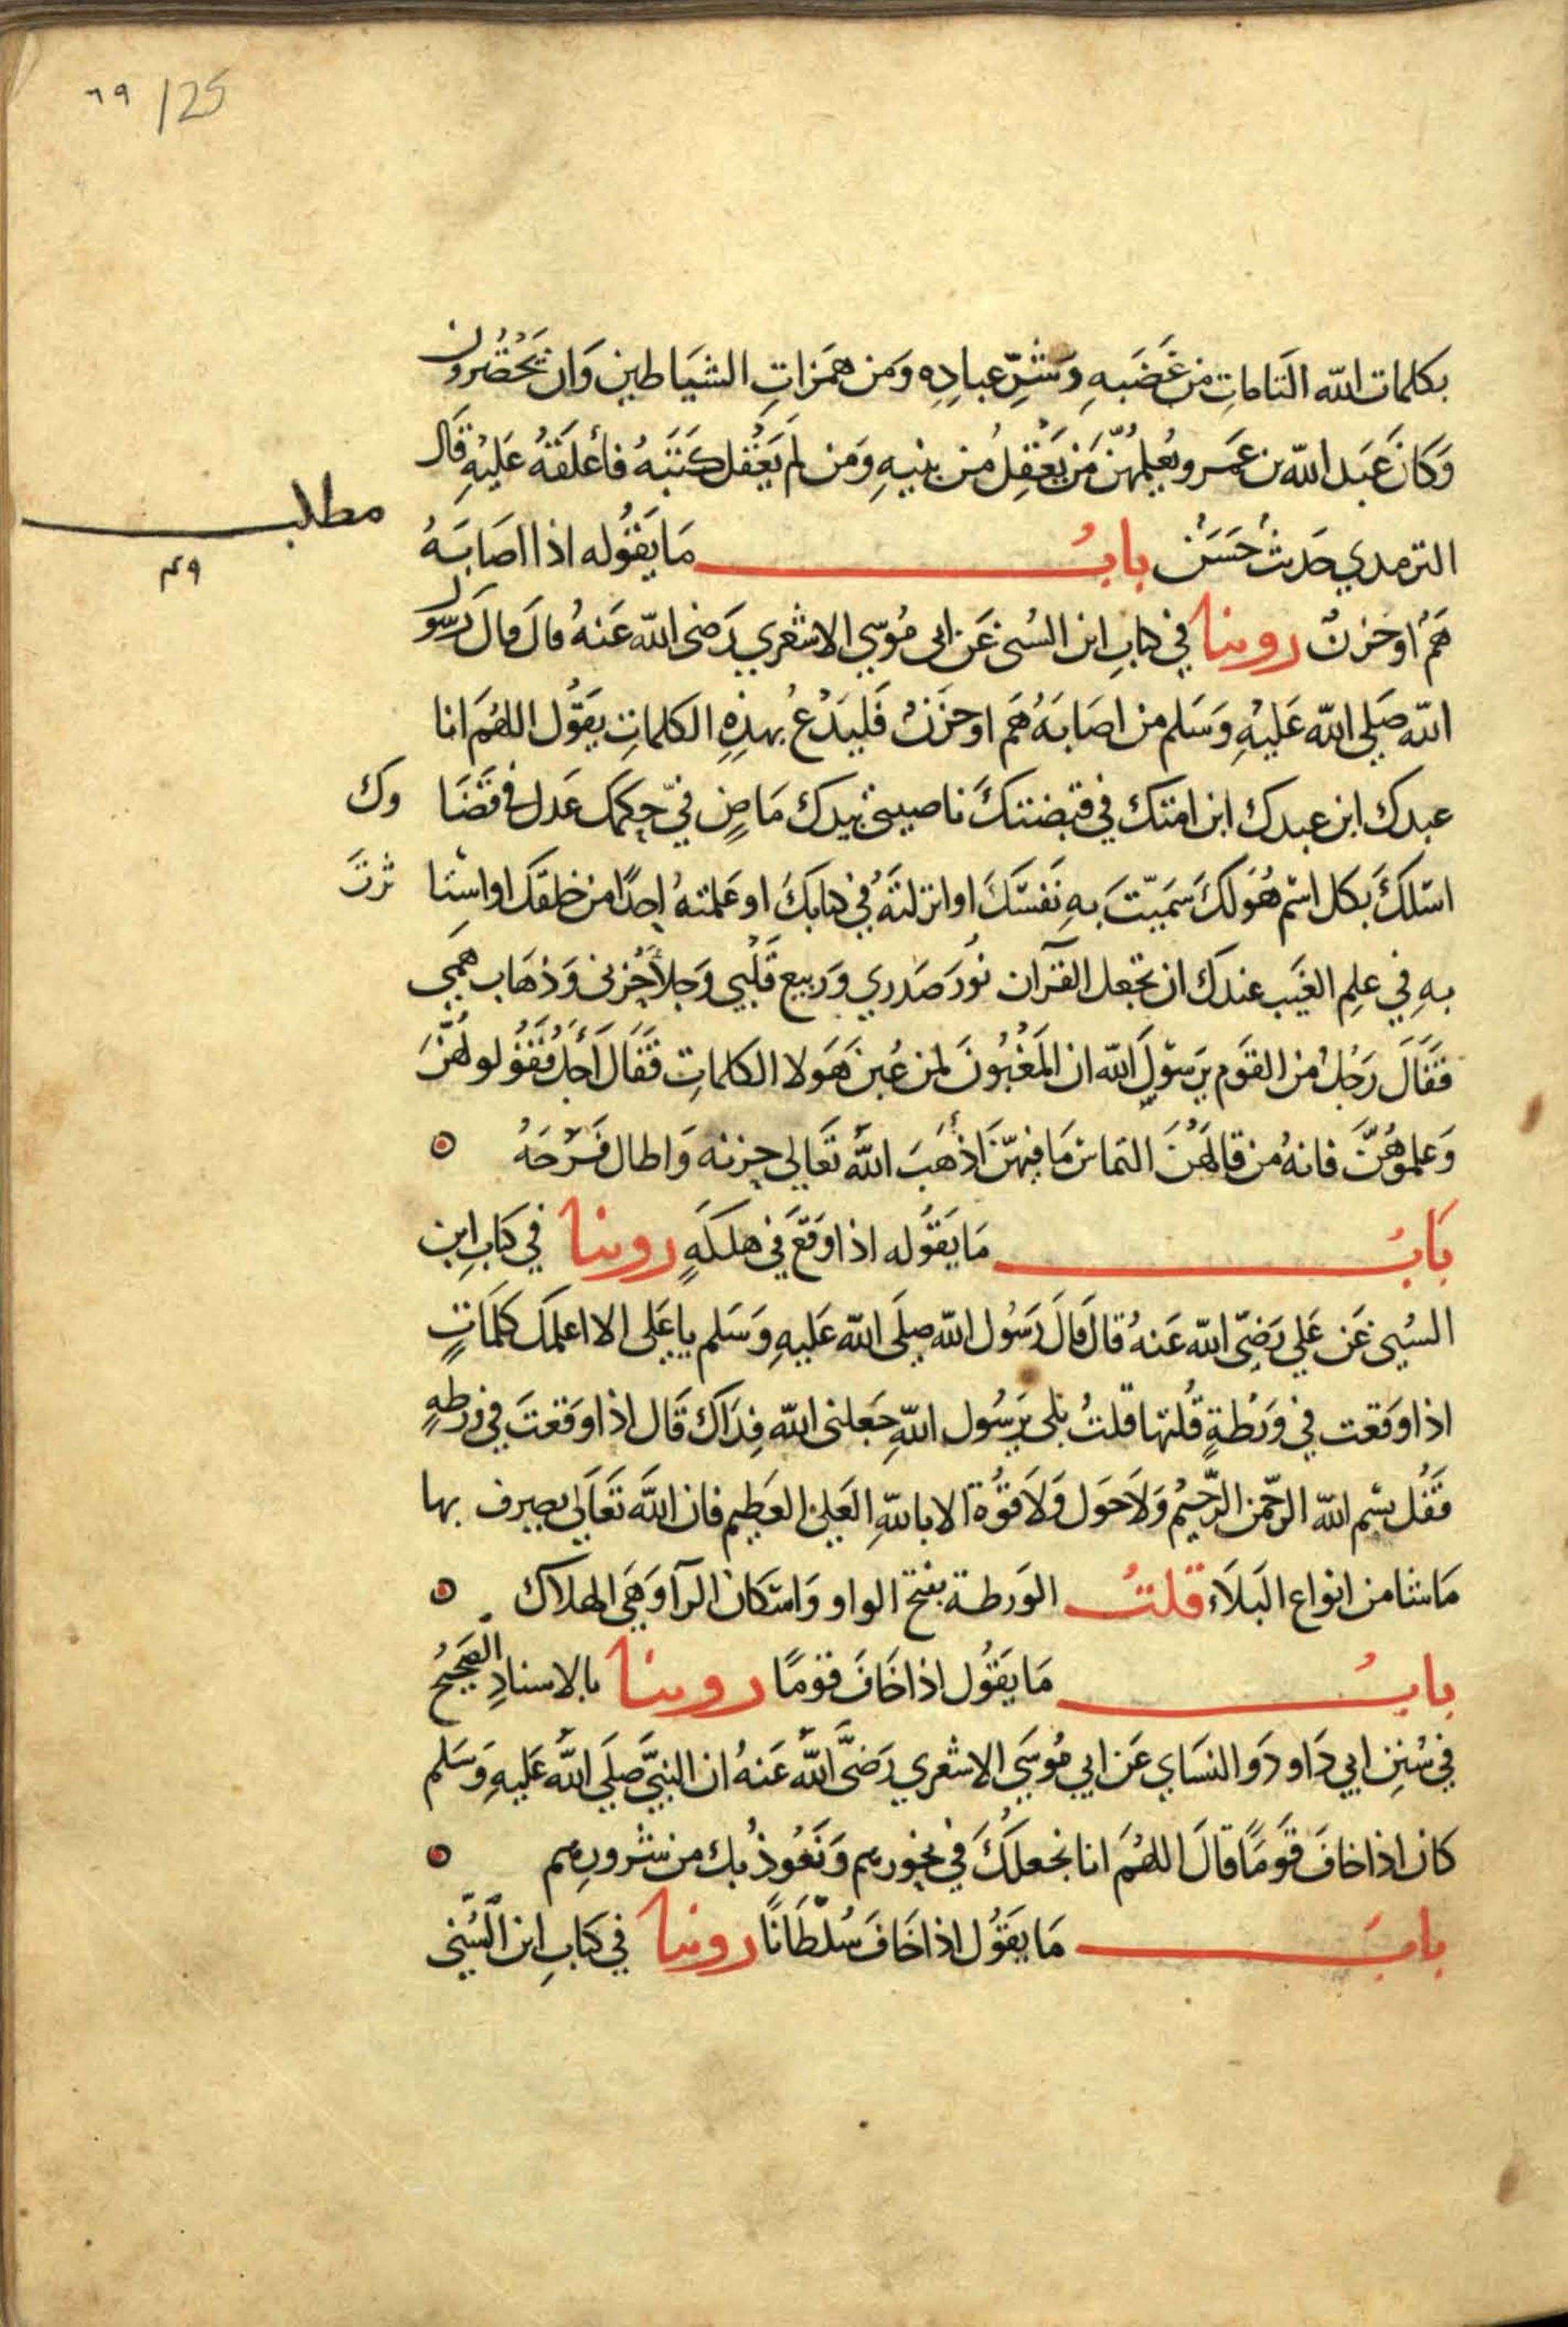 ٦٩ /25
بكلمات الله التامات من غضبه وشر عباده ومن همزات الشياطين وان يحضرون
وكان عبد الله بن عمرو يعلمهن من يعقل من بنيه ومن لم يعقل كتبه فأعلقه عليه قال
مطلب
الترمدي حدث حسن باب ما يقوله اذا اصابه
هم او حزن روينا في كتاب ابن السني عن ابي موسي الاشعري رضي الله عنه قال قال رسول
الله صلي الله عليه وسلم من اصابه هم او حزن فليدع بهذه الكلمات يقول اللهم انا
عبدك ابن عبدك ابن امتك في قبضتك ناصيتي بيدك ماض في حكمك عدل في قضاوك
اسلك بكل اسم هو لك سميت به نفسك او انزلته في كتابك او علمته احدا من خلقك او استاثرت
به في علم الغيب عندك ان تجعل القرآن نور صدري وربيع قلبي وجلأ حزني وذهاب همي
فقال رجل من القوم يرسول الله ان المغبون لمن غبن هولا الكلمات فقال أجل فقولوهن
وعلموهن فانه من قالهن التماس ما فيهن اذهب الله تعالي حزنه واطال فرحه
باب ما يقوله اذا وقع في هلكة روينا في كتاب ابن
السني عن علي رضي الله عنه قال قال رسول الله صلي الله عليه وسلم يا علي الا اعلمك كلمات
اذا وقعت في ورطة قلتها قلت بلي يرسول الله جعلني الله فداك قال اذا وقعت في ورطة
فقل بسم الله الرحمن الرحيم ولا حول ولا قوة الا بالله العلي العظيم فان الله تعالي يصرف بها
ما شا من انواع البلاء قلت الورطة بفتح الواو واسكان الرآ وهي الهلاك
باب ما يقول اذا خاف قوما روينا بالاسناد الصحيح
في سنن ابي داود والنساي عن ابي موسي الاشعري رضي الله عنه ان النبي صلي الله عليه وسلم
كان اذا خاف قوما قال اللهم انا نجعلك في نحورهم ونعوذ بك من شرورهم
باب ما يقول اذا خاف سلطانا روينا في كتاب ابن السني